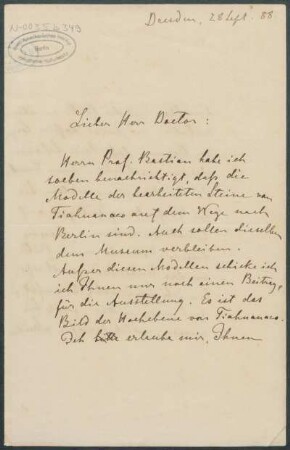 N-0035 b 349
Berlin
Dresden, 28 Sept 88.
Lieber Herr Doctor:
Herrn Prof. Bastian habe ich
soeben benachrichtigt, daß die
Modelle der bearbeiteten Steine von
Tiahuanaco auf dem Wege nach
Berlin sind. Auch sollen dieselben
dem Museum verbleiben.
Außer diesen Modellen schicke ich
ich Ihnen nur noch einen Beitrag
für die Ausstellung. Es ist das
Bild der Hochebene von Tiahuanaco.
Ich bitte erlaube mir, Ihnen